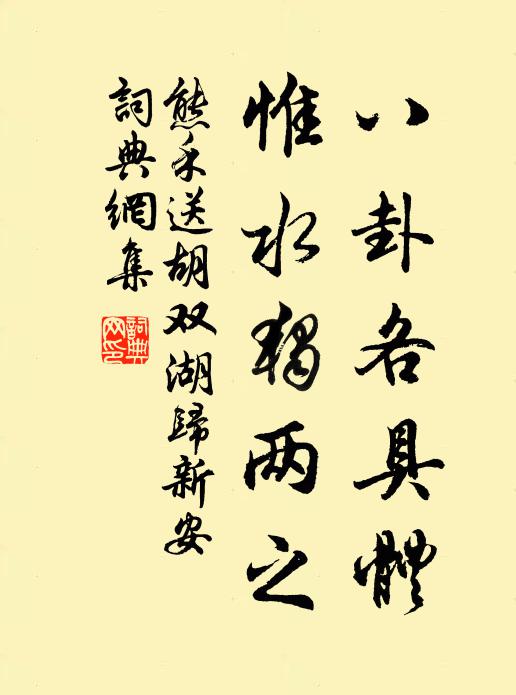 八卦各具體
惟水獨两之
熊禾送胡双湖歸新安
詞典網集
詞典網印